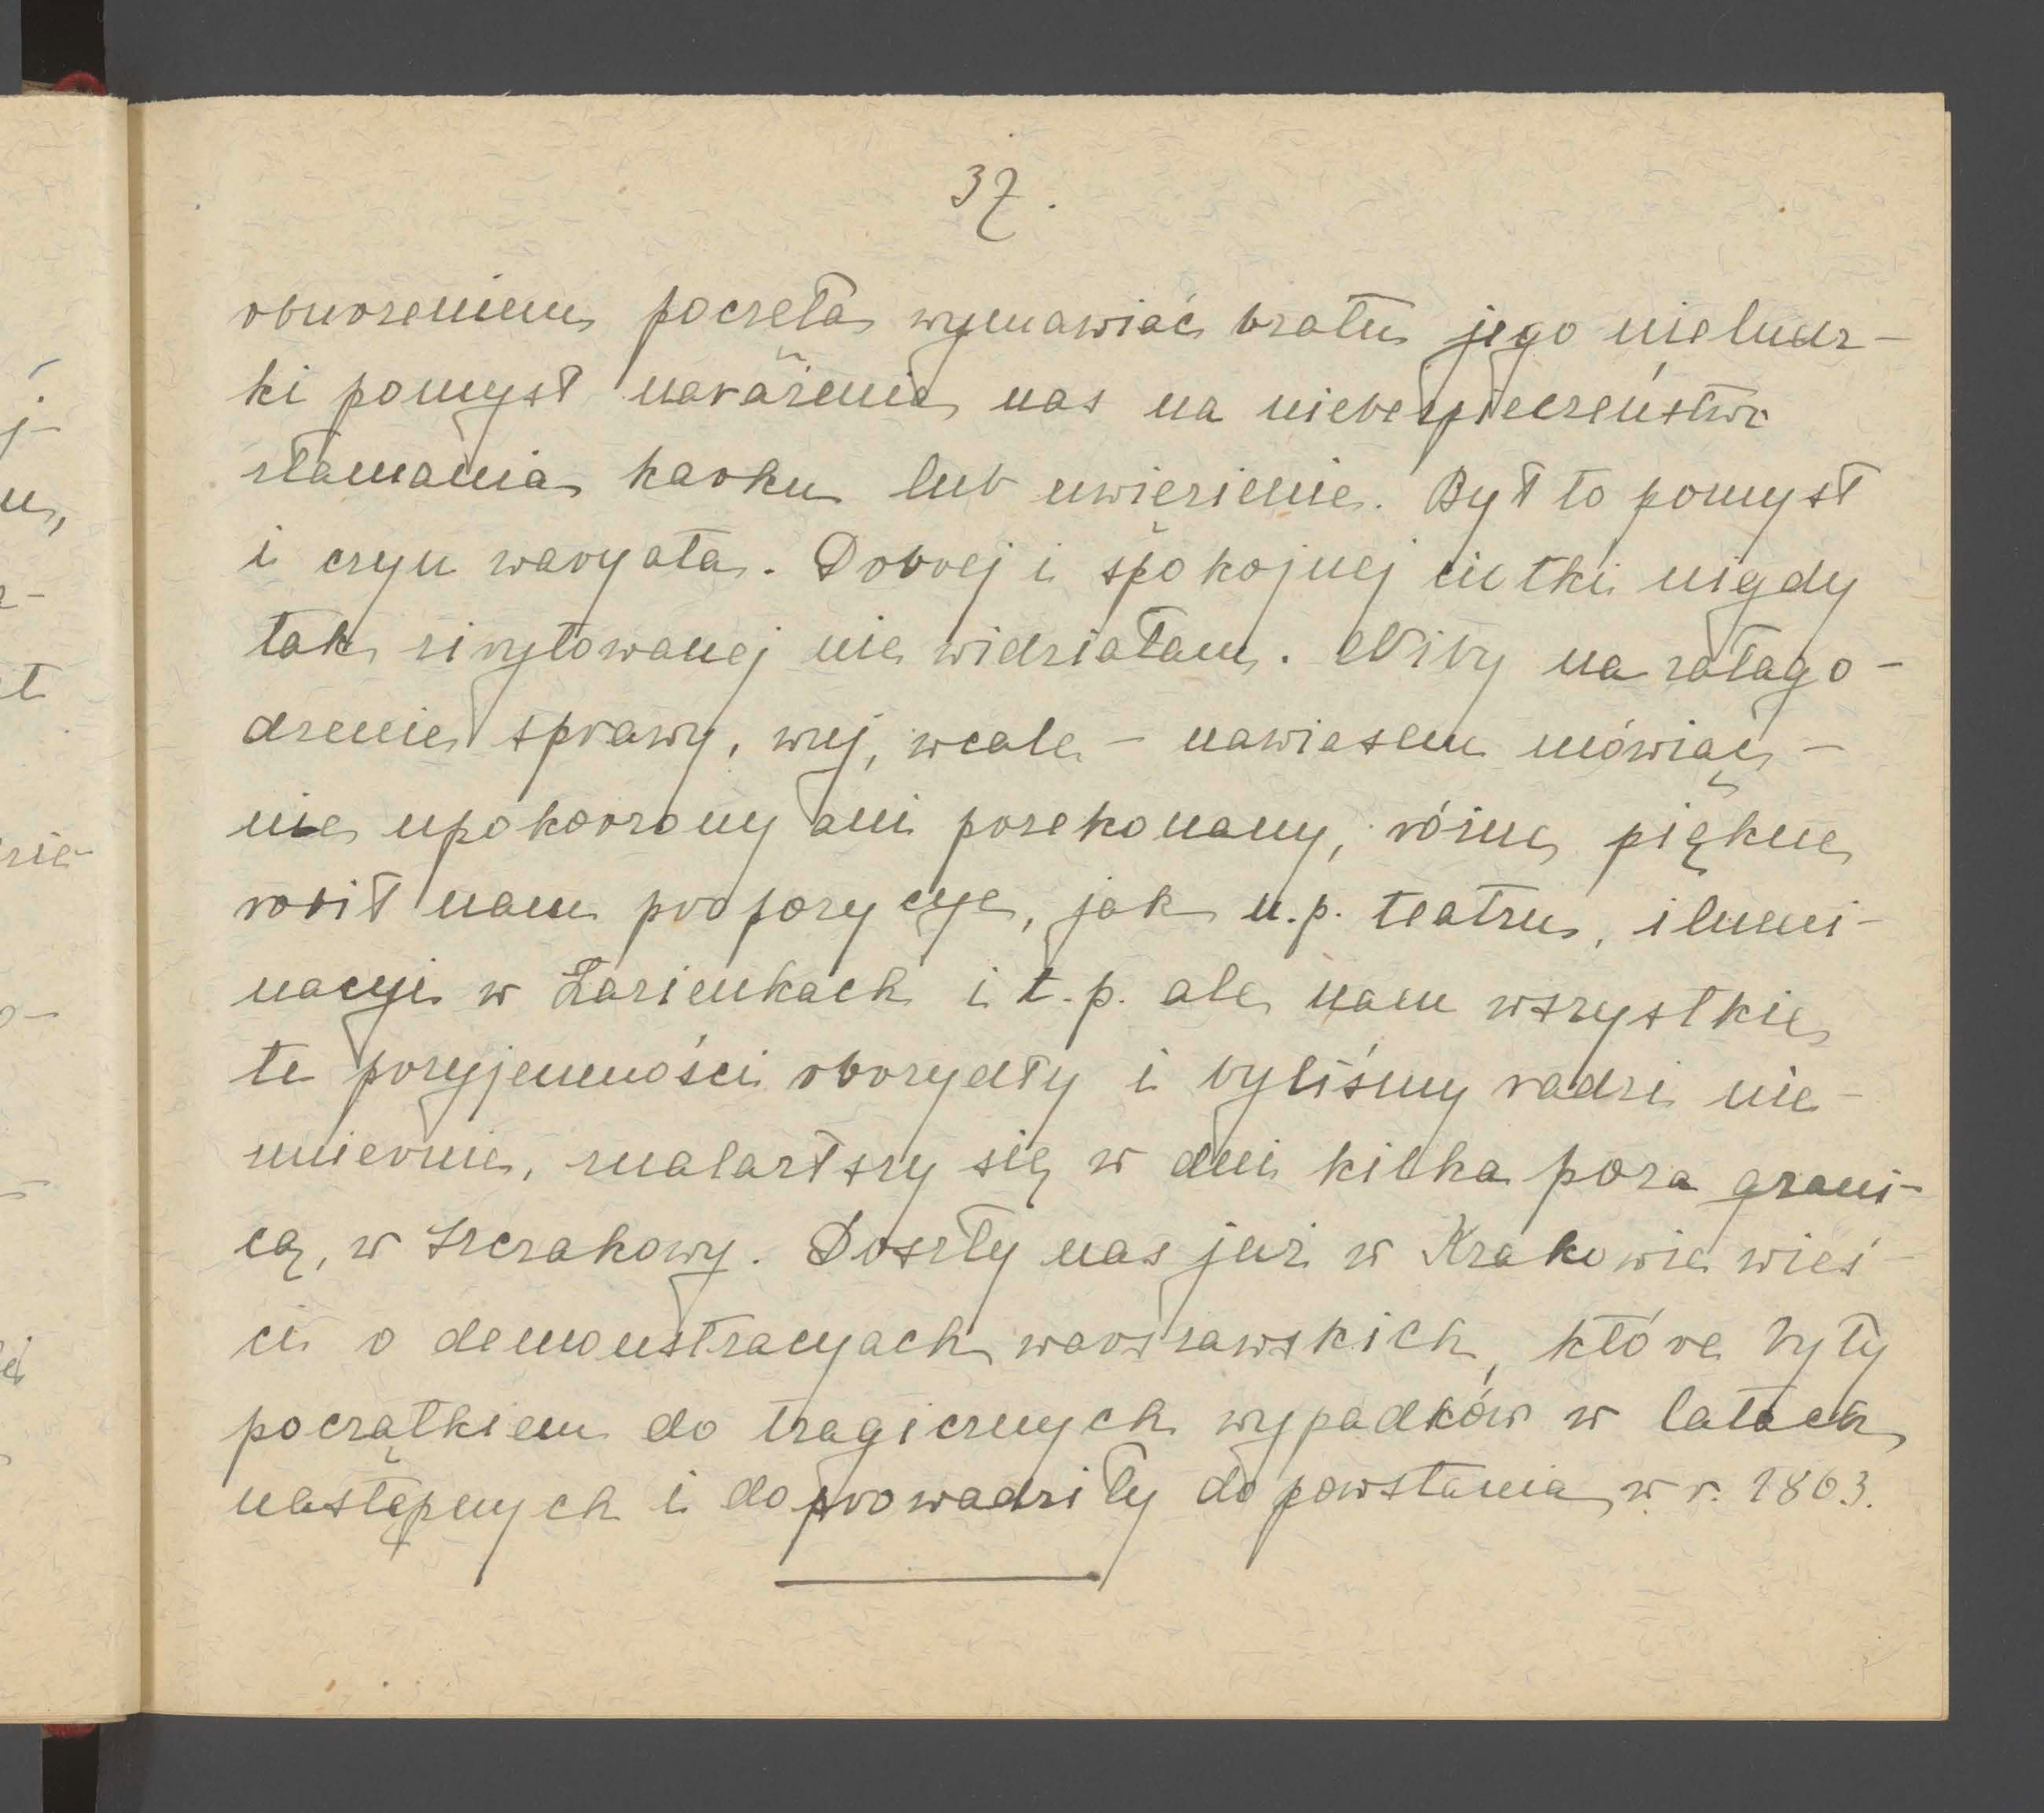 37.
oburzeniem poczęła wymawiać bratu jego nieludz-
ki pomysł narażenia nas na niebezpieczeństwo
złamania karku lub uwięzienie. Był to pomysł
i czyn waryata. Dobrej i spokojnej ciotki nigdy
tak zirytowanej nie widziałam. Niby na załago-
dzenie sprawy, wuj, wcale – nawiasem mówiąc –
nie upokorzony ani przekonany, różne piękne
robił nam propozycye, jak n.p. teatru, ilumi-
nacyi w Łazienkach i t.p. ale nam wszystkie
te przyjemności obrzydły i byliśmy radzi nie-
zmiernie, znalazłszy się w dni kilka poza grani-
cą, w Szczakowy. Doszły nas już w Krakowie wieś-
ci o demonstracyach warszawskich, które były
początkiem do tragicznych wypadków w latach
następnych i doprowadziły do powstania w r. 1863.